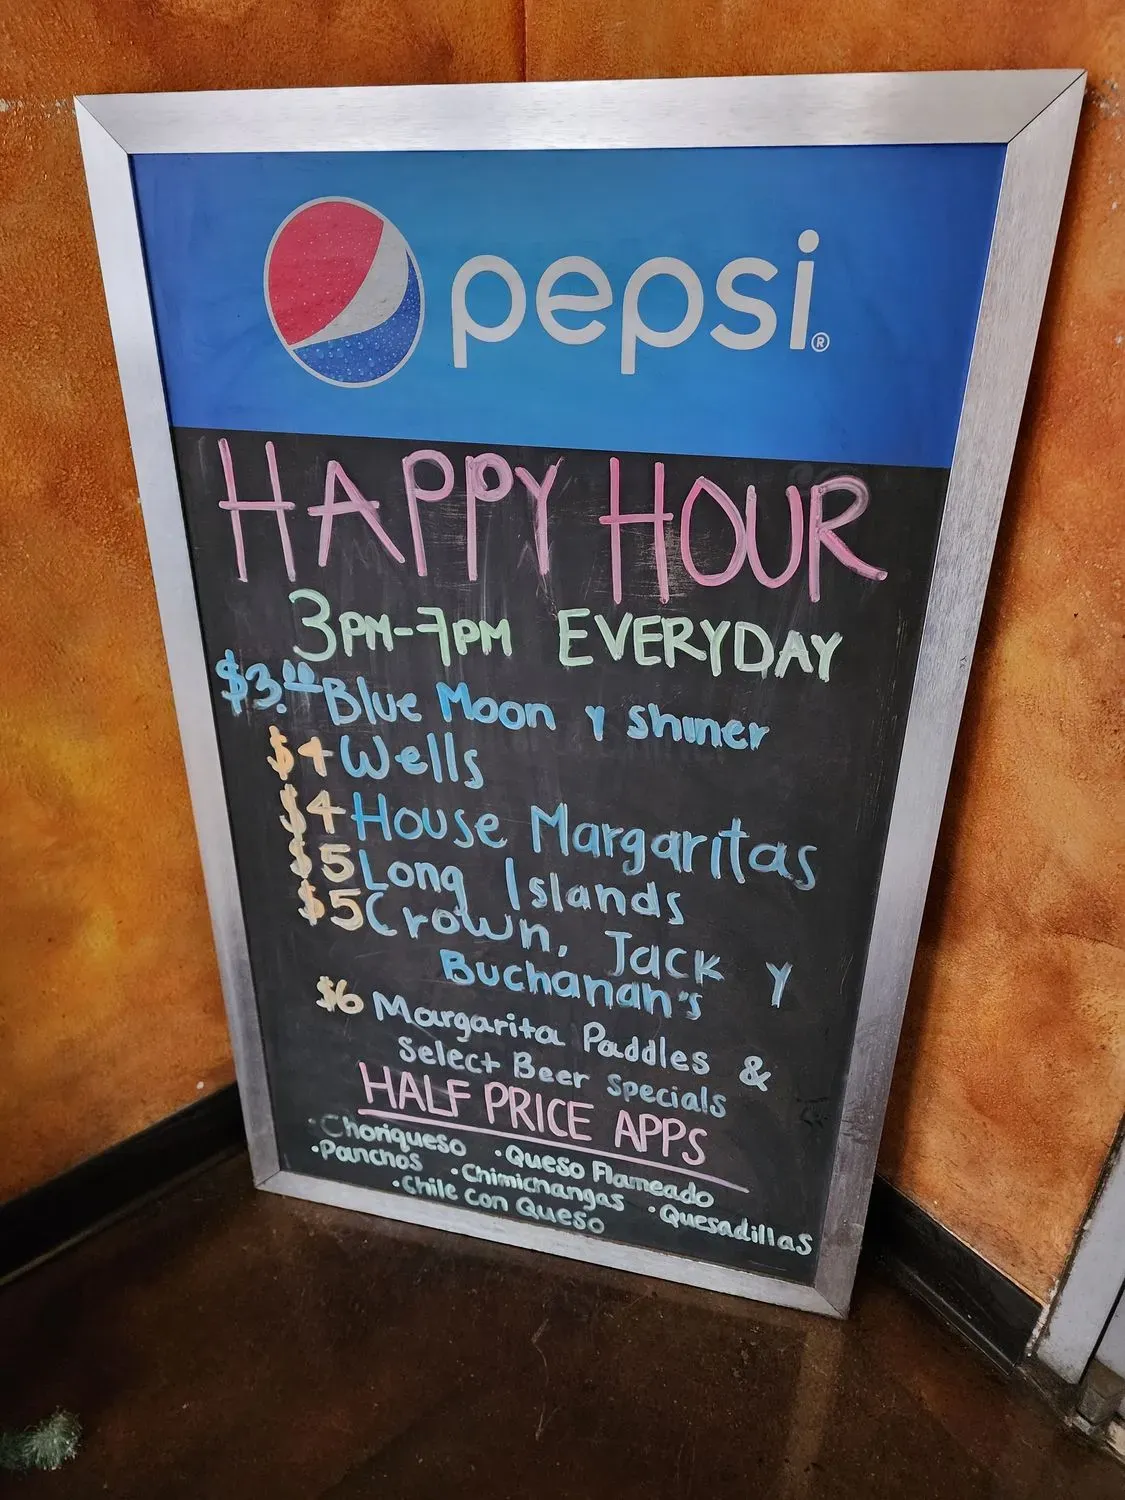 pepsi®
HAPPY HOUR
3PM-7PM EVERYDAY
$3.00 Blue Moon y Shiner
$4 Wells
$4 House Margaritas
$5 Long Islands
$5 Crown, Jack y
Buchanan's
$6 Margarita Paddles &
Select Beer Specials
HALF PRICE APPS
·Choriqueso ·Queso Flameado
·Panchos ·Chimichangas ·Quesadillas
·Chile con Queso